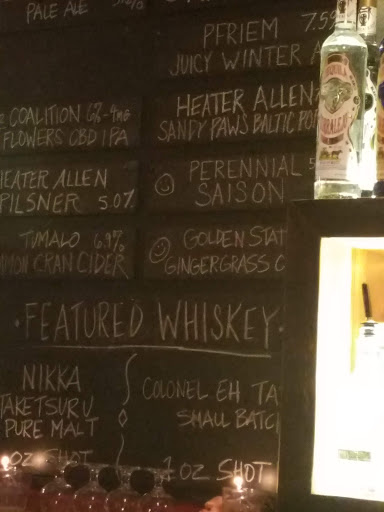 PALE ALE
PFRIEM 7.5%
JUICY WINTER A
COALITION 6% - 4mg
FLOWERS CBD IPA
HEATER ALLEN
SANDY PAWS BALTIC PO
HEATER ALLEN
PILSNER 5.0%
PERENNIAL 5
SAISON
TUMALO 6.9%
CRAN CIDER
GOLDEN STAT
GINGERGRASS C
· FEATURED WHISKEY ·
NIKKA
TAKETSURU
PURE MALT
OZ SHOT
COLONEL EH TA
SMALL BATC
1 OZ SHOT
TEQUILA
CORRALEJO